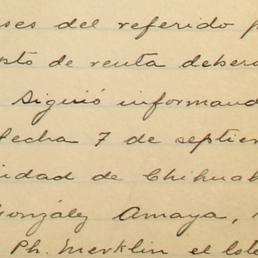 ses del referido p
pto de renta debera
Siguió informand
fecha 7 de septiem
idad de Chihuah
González Amaya,
Ph. Merklin el